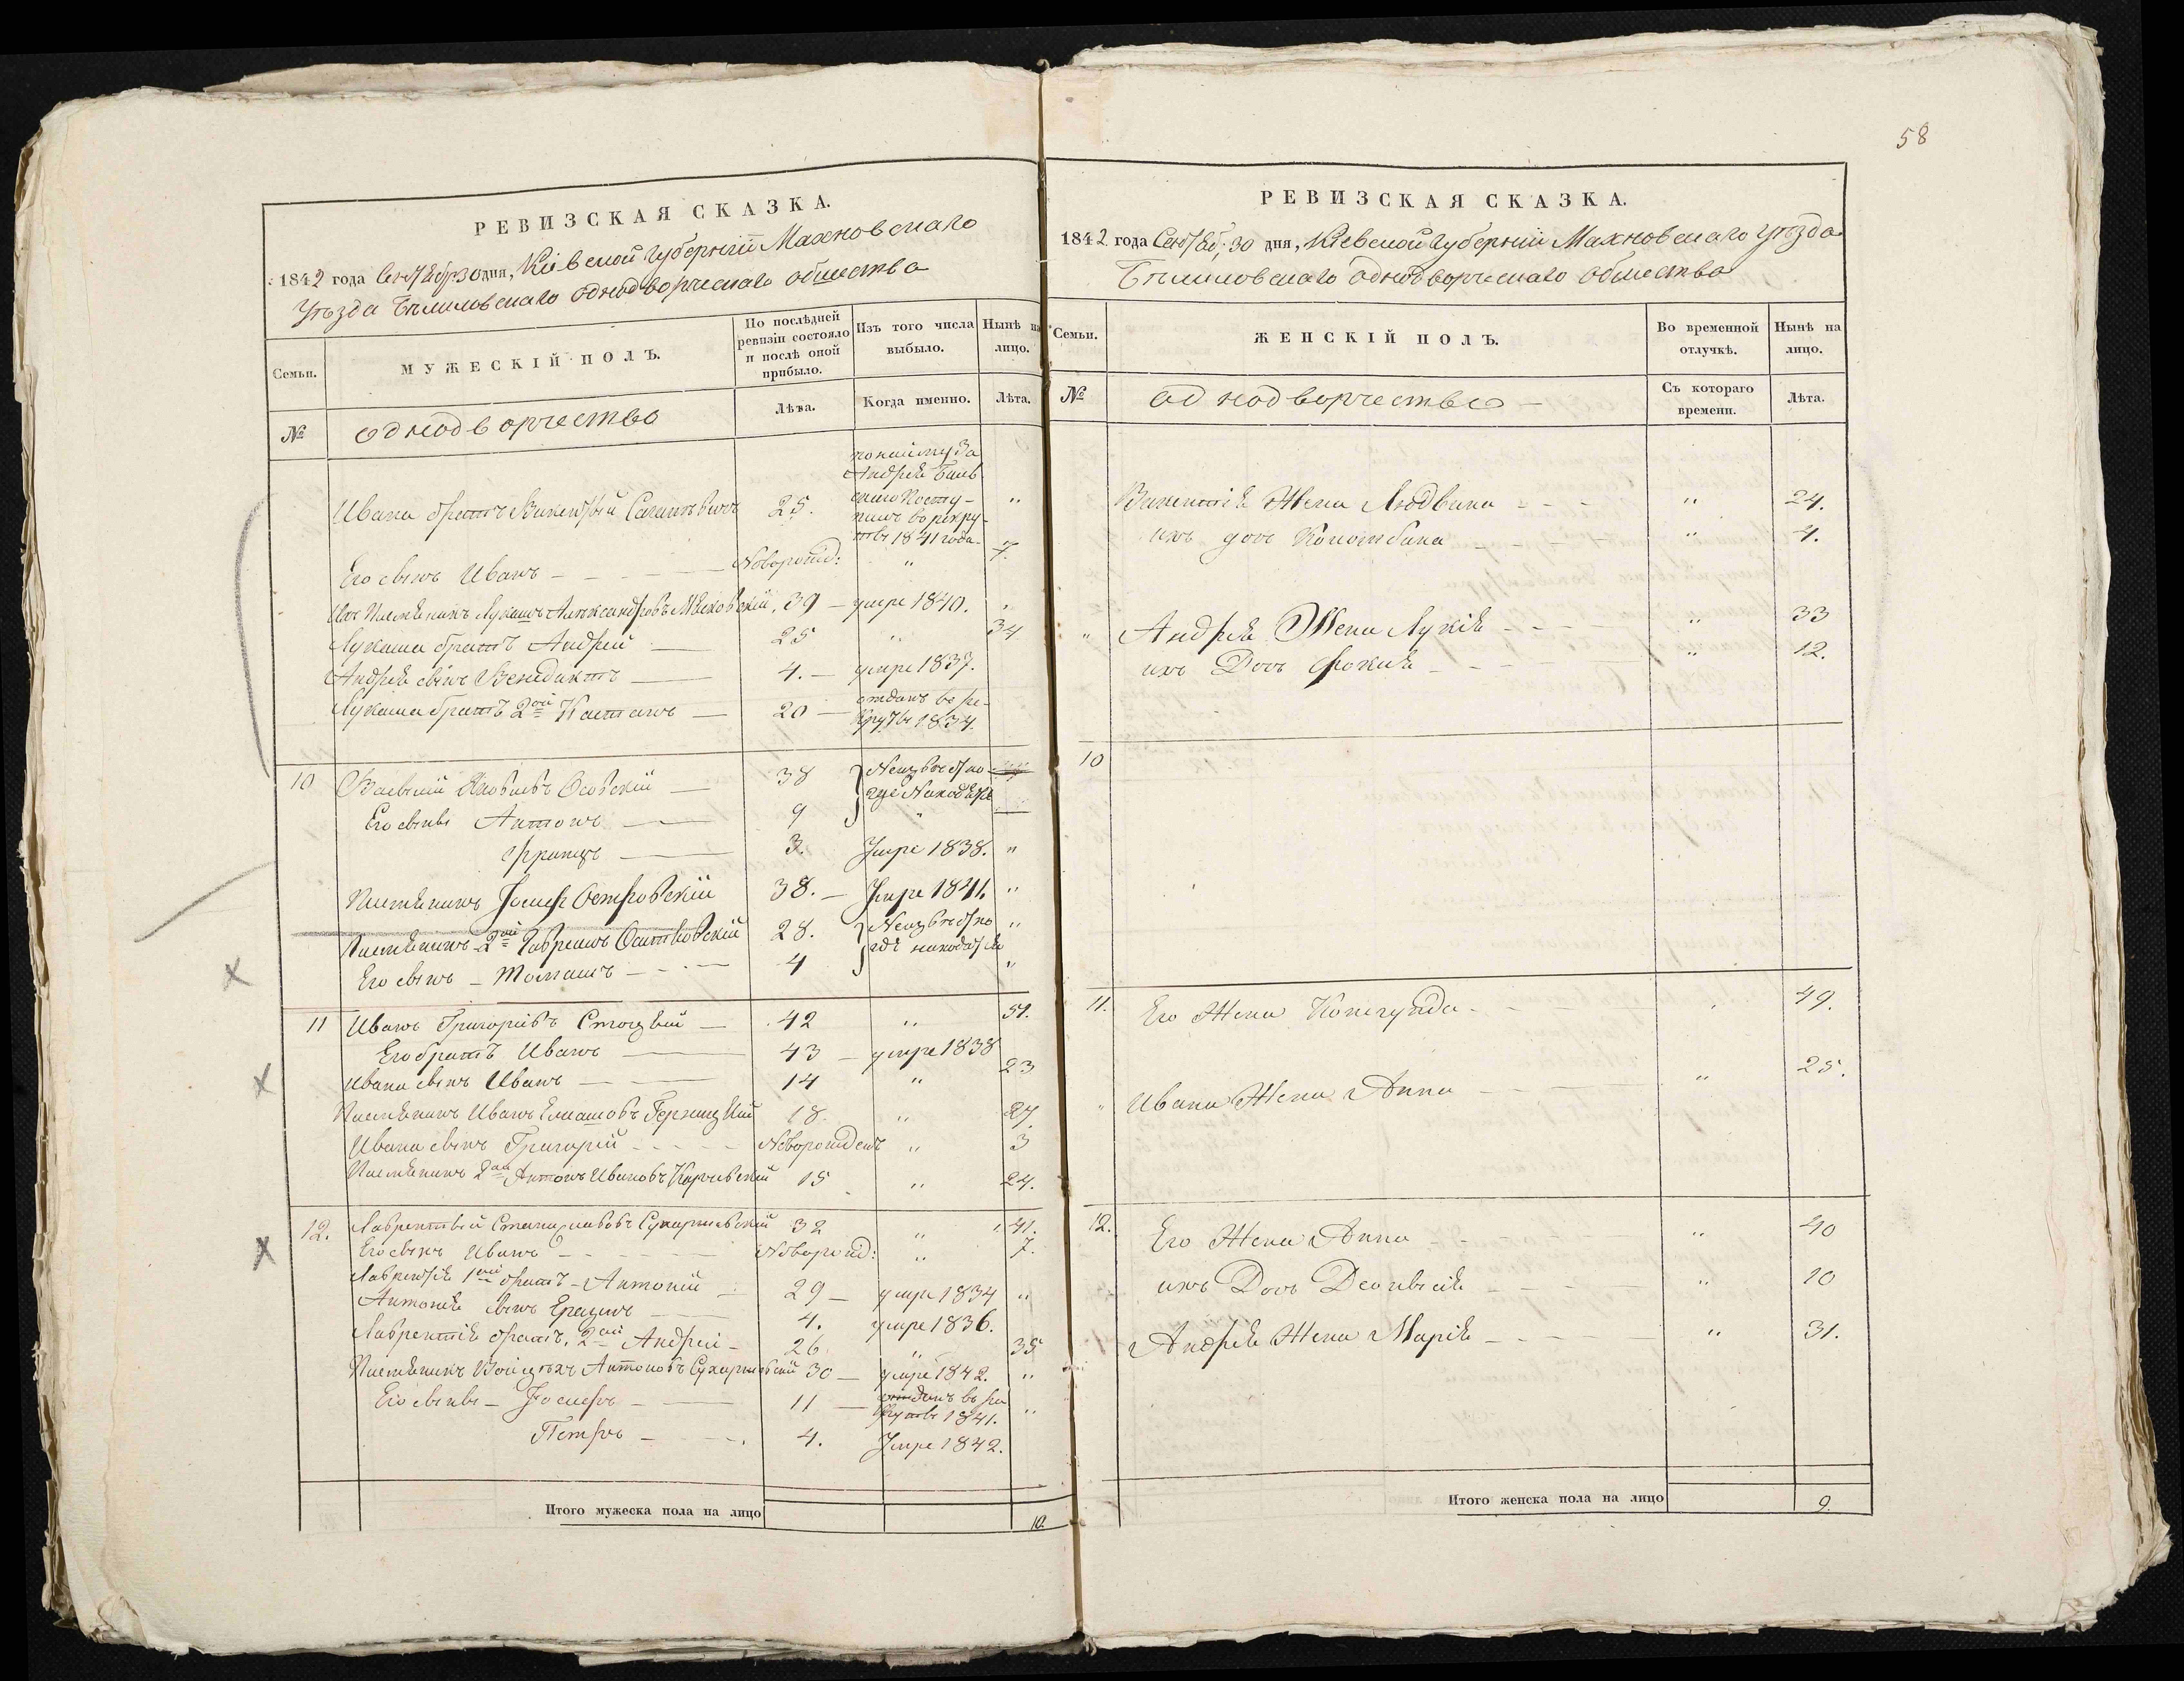 58
РЕВИЗСКАЯ СКАЗКА.
1842 года Сентябр: 30 дня, Кіевской Губерніи Махновскаго
Уѣзда Бѣлиловскаго однодворческаго общества
Семьи.
МУЖЕСКІЙ ПОЛЪ.
По послѣдней ревизіи состояло и послѣ оной прибыло.
Изъ того числа выбыло.
Нынѣ на лицо.
№
однодворчество
Лѣта.
Когда именно.
Лѣта.
по найму за
Андрея
посту-
пилъ въ рекру-
ты 1841 года
Ивана братъ Викентый 25. "
Его сынъ Иванъ - Новорожд: " 7.
Их племяникъ Лукашъ Александровъ 39 - умре 1840. "
Лукаша братъ Андрей — 25 " 34
Андрея сынъ Венедиктъ — 4. - умре 1837.
Лукаша братъ 2ой Каетанъ — 20 - отданъ въ ре-
круты 1834.
10 Василій Яковлевъ Осовскій — 38 Неизвѣстно
Его сыны Антонъ — 9 где Находятся
Францъ — 3. Умре 1838. "
Племяникъ Іосифъ Островскій 38. - Умре 1841. "
Племяникъ 2ой Гавріилъ 28. Неизвѣстно "
Его сынъ - Томашъ - 4 гдѣ находятся "
11 Иванъ Григорьевъ Стоцкій — 42 " 51.
Его братъ Иванъ — 43 - умре 1838
Ивана сынъ Иванъ — 14 " 23
Племяникъ Иванъ 18. " 27.
Ивана сынъ Григорій - Новорожденъ " 3
Племяникъ 2ой Антонъ Ивановъ 15 " 24.
12. Лаврентый Станиславовъ 32 " 41.
Его сынъ Иванъ - Новорожд: " 7.
Лаврентія 1ый братъ - Антоній - 29 - умре 1834 "
Антонія сынъ — 4. умре 1836.
Лаврентія братъ 2ой Андрей - 26 " 35
Племяникъ Войцѣхъ Антоновъ 30 - умре 1842. "
Его сыны - Іосифъ — 11 - отданъ въ ре-
круты 1841. "
Петръ - 4. Умре 1842.
Итого мужеска пола на лицо 10.
РЕВИЗСКАЯ СКАЗКА.
1842 года Сентяб: 30 дня, Кіевской Губерніи Махновскаго Уѣзда
Бѣлиловскаго однодворческаго общества
Семьи.
ЖЕНСКІЙ ПОЛЪ.
Во временной отлучкѣ.
Нынѣ на лицо.
№
однодворчество —
Съ котораго времени.
Лѣта.
Викентія Жена Людвика - " 24.
ихъ дочь - " 4.
" Андрея Жена Лукія - " 33
ихъ Дочь - " 12.
10
11. Его Жена Конегунда - " 49.
" Ивана Жена Анна - " 25.
12. Его Жена Анна - " 40
ихъ Дочь Деонисія - " 10
Андрея Жена Марія - " 31.
Итого женска пола на лицо 9.